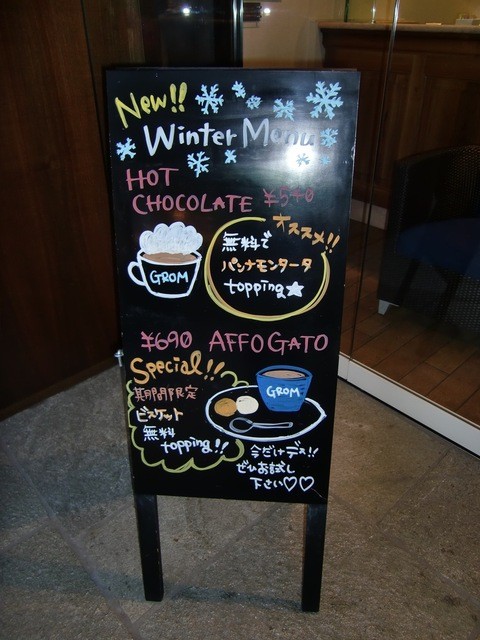 New!!
Winter Menu
HOT
CHOCOLATE ¥540
オススメ!!
無料で
パンナモンタータ
topping★
GROM
¥690 AFFOGATO
Special!!
期間限定
ビスケット
無料
topping!!
GROM
今だけデス!!
ぜひお試し
下さい♡♡